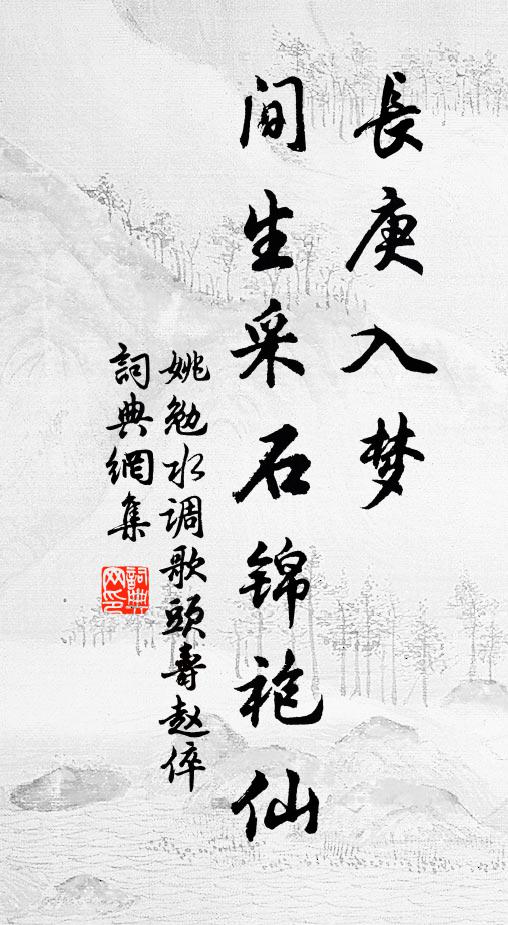 長庚入梦
间生采石锦袍仙
姚勉水调歌頭壽赵倅
詞典網集
詞典网印